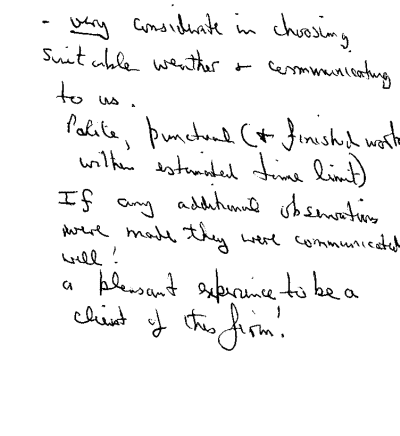 - very considerate in choosing
suitable weather & communicating
to us.
Polite, punctual (& finished work
within estimated time limit)
If any additional observations
were made they were communicated
well!
a pleasant experience to be a
client of this firm!